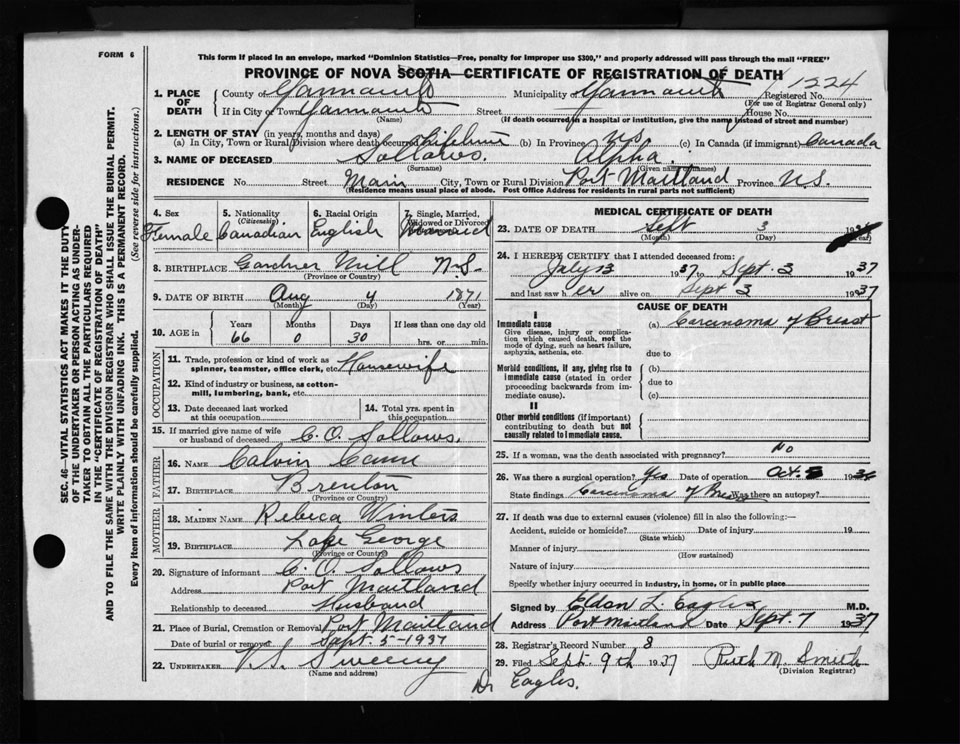 FORM 6
This form if placed in an envelope, marked "Dominion Statistics—Free, penalty for improper use $300," and properly addressed will pass through the mail "FREE"
PROVINCE OF NOVA SCOTIA—CERTIFICATE OF REGISTRATION OF DEATH
1224
1. PLACE OF DEATH
County of Yarmouth Municipality of Yarmouth Registered No.
(For use of Registrar General only)
If in City or Town Yarmouth Street House No.
(Name) (If death occurred in a hospital or institution, give the name instead of street and number)
2. LENGTH OF STAY (in years, months and days)
(a) In City, Town or Rural Division where death occurred Lifetime (b) In Province N.S. (c) In Canada (if immigrant) Canada
3. NAME OF DECEASED Sollows. Alpha.
(Surname) (Given name or names)
RESIDENCE No. Street Main City, Town or Rural Division Port Maitland Province N.S.
(Residence means usual place of abode. Post Office Address for residents in rural parts not sufficient)
4. Sex Female
5. Nationality (Citizenship) Canadian
6. Racial Origin English
7. Single, Married, Widowed or Divorced Married
8. BIRTHPLACE Gardner Mill N.S.
(Province or Country)
9. DATE OF BIRTH Aug 4 1871
(Month) (Day) (Year)
10. AGE in Years Months Days If less than one day old
66 0 30 hrs. or min.
OCCUPATION
11. Trade, profession or kind of work as spinner, teamster, office clerk, etc. Housewife
12. Kind of industry or business, as cotton-mill, lumbering, bank, etc.
13. Date deceased last worked at this occupation
14. Total yrs. spent in this occupation
15. If married give name of wife or husband of deceased C. O. Sollows.
FATHER
16. NAME Calvin Cann
17. BIRTHPLACE Brenton
(Province or Country)
MOTHER
18. MAIDEN NAME Rebeca Winters
19. BIRTHPLACE Lake George
(Province or Country)
20. Signature of informant C. O. Sollows
Address Port Maitland
Relationship to deceased Husband
21. Place of Burial, Cremation or Removal Port Maitland
Date of burial or removal Sept. 5-1937
22. UNDERTAKER V.S. Sweeny
(Name and address)
Dr Eagles.
MEDICAL CERTIFICATE OF DEATH
23. DATE OF DEATH Sept 3 19
(Month) (Day) (Year)
24. I HEREBY CERTIFY that I attended deceased from:
July 13 1937 to Sept. 3 1937
and last saw her alive on Sept 3 1937
CAUSE OF DEATH
I
Immediate cause
Give disease, injury or complication which caused death, not the mode of dying, such as heart failure, asphyxia, asthenia, etc.
(a) Carcinoma of Breast
due to
Morbid conditions, if any, giving rise to immediate cause (stated in order proceeding backwards from immediate cause).
(b)
due to
(c)
II
Other morbid conditions (if important) contributing to death but not causally related to immediate cause.
25. If a woman, was the death associated with pregnancy? No
26. Was there a surgical operation? Yes Date of operation Oct. 19
State findings Carcinoma of Breast Was there an autopsy?
27. If death was due to external causes (violence) fill in also the following:—
Accident, suicide or homicide? Date of injury 19
(State which)
Manner of injury
(How sustained)
Nature of injury
Specify whether injury occurred in industry, in home, or in public place
Signed by Eldon L. Eagles M.D.
Address Port Maitland Date Sept. 7 1937
28. Registrar's Record Number 8
29. Filed Sept. 9th 1937 Ruth M. Smith
(Division Registrar)
SEC. 46—VITAL STATISTICS ACT MAKES IT THE DUTY
OF THE UNDERTAKER OR PERSON ACTING AS UNDER-
TAKER TO OBTAIN ALL THE PARTICULARS REQUIRED
IN THE "CERTIFICATE OF REGISTRATION OF DEATH"
AND TO FILE THE SAME WITH THE DIVISION REGISTRAR WHO SHALL ISSUE THE BURIAL PERMIT.
WRITE PLAINLY WITH UNFADING INK. THIS IS A PERMANENT RECORD.
Every item of information should be carefully supplied. (See reverse side for instructions.)